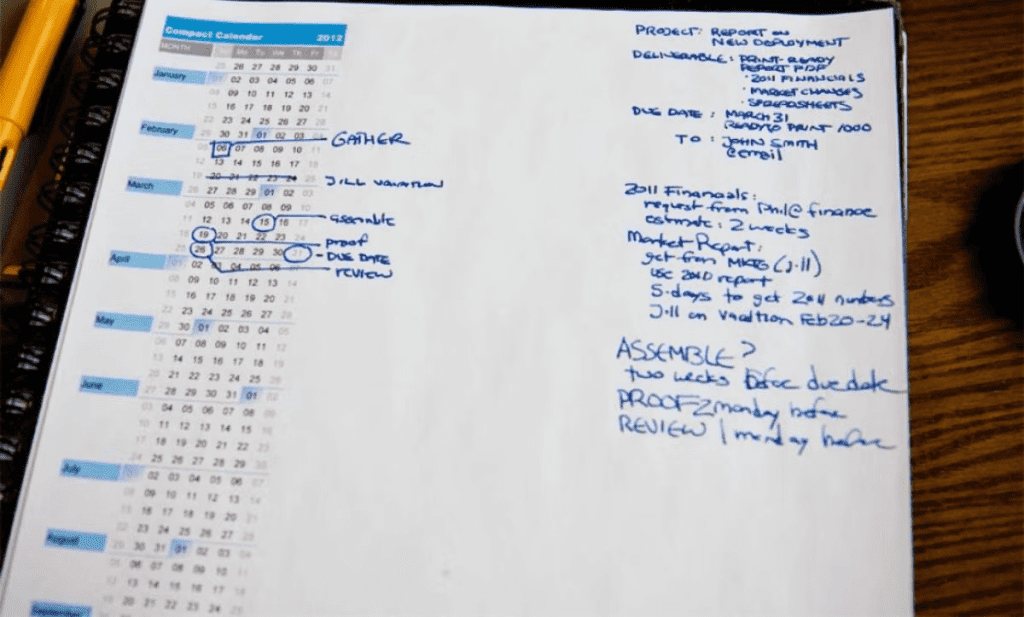 Compact Calendar 2012
MONTH Su Mo Tu We Th Fr Sa
25 26 27 28 29 30 31
January 01 02 03 04 05 06 07
08 09 10 11 12 13 14
15 16 17 18 19 20 21
22 23 24 25 26 27 28
February 29 30 31 01 02 03 04
05 06 07 08 09 10 11
12 13 14 15 16 17 18
19 20 21 22 23 24 25
March 26 27 28 29 01 02 03
04 05 06 07 08 09 10
11 12 13 14 15 16 17
18 19 20 21 22 23 24
25 26 27 28 29 30 31
April 01 02 03 04 05 06 07
08 09 10 11 12 13 14
15 16 17 18 19 20 21
22 23 24 25 26 27 28
May 29 30 01 02 03 04 05
06 07 08 09 10 11 12
13 14 15 16 17 18 19
20 21 22 23 24 25 26
June 27 28 29 30 31 01 02
03 04 05 06 07 08 09
10 11 12 13 14 15 16
17 18 19 20 21 22 23
24 25 26 27 28 29 30
July 01 02 03 04 05 06 07
08 09 10 11 12 13 14
15 16 17 18 19 20 21
22 23 24 25 26 27 28
August 29 30 31 01 02 03 04
05 06 07 08 09 10 11
12 13 14 15 16 17 18
19 20 21 22 23 24 25
September
GATHER
JILL VACATION
assemble
proof
DUE DATE
REVIEW
PROJECT: REPORT ON
NEW DEPLOYMENT
DELIVERABLE: PRINT-READY
REPORT PDF
· 2011 FINANCIALS
· MARKET CHANGES
· SPREADSHEETS
DUE DATE: MARCH 31
READY TO PRINT 1000
TO: JOHN SMITH
@email
2011 Financials:
request from Phil@finance
estimate: 2 weeks
Market Report:
get from MKTG (Jill)
use 2010 report
5-days to get 2011 numbers
Jill on vacation Feb 20-24
ASSEMBLE?
two weeks before due date
PROOF 2 monday before
REVIEW 1 monday before